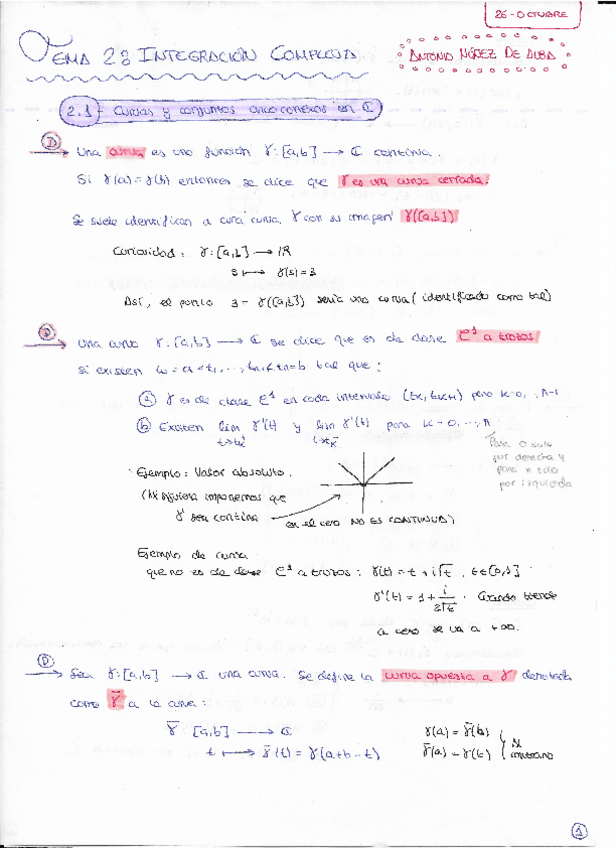 26-OCTUBRE
TEMA 2: INTEGRACIÓN COMPLEJA
ANTONIO NÚÑEZ DE ALBA
2.1- Curvas y conjuntos arcoconexos en ℂ
D) Una curva es una función γ: [a,b] → ℂ continua.
Si γ(a) = γ(b) entonces se dice que γ es una curva cerrada.
Se suele identificar a una curva γ con su imagen γ([a,b])
Curiosidad: γ: [a,b] → ℝ
s ↦ γ(s) = 3
Así, el punto 3 = γ([a,b]) sería una curva (identificado como tal)
D) Una curva γ: [a,b] → ℂ se dice que es de clase C¹ a trozos
si existen t₀ = a < t₁, ..., tₙ₋₁ < tₙ = b tal que:
a) γ es de clase C¹ en cada intervalo (tₖ, tₖ₊₁) para k=0,..,n-1
b) Existen lim γ'(t) y lim γ'(t) para k = 0, ..., n
t→tₖ⁺ t→tₖ⁻
Para 0 solo
por derecha y
para n solo
por izquierda
Ejemplo: Valor absoluto.
(Ni siquiera imponemos que
γ' sea continua
en el cero NO ES CONTINUA)
Ejemplo de curva
que no es de clase C¹ a trozos: γ(t) = t + i√t, t∈[0,1]
γ'(t) = 1 + i/2√t . Cuando tiende
a cero se va a +∞.
D) Sea γ: [a,b] → ℂ una curva. Se define la curva opuesta a γ denotada
como γ̄ a la curva:
γ̄: [a,b] → ℂ
t ↦ γ̄(t) = γ(a+b-t)
γ(a) = γ̄(b)
γ̄(a) = γ(b)
1